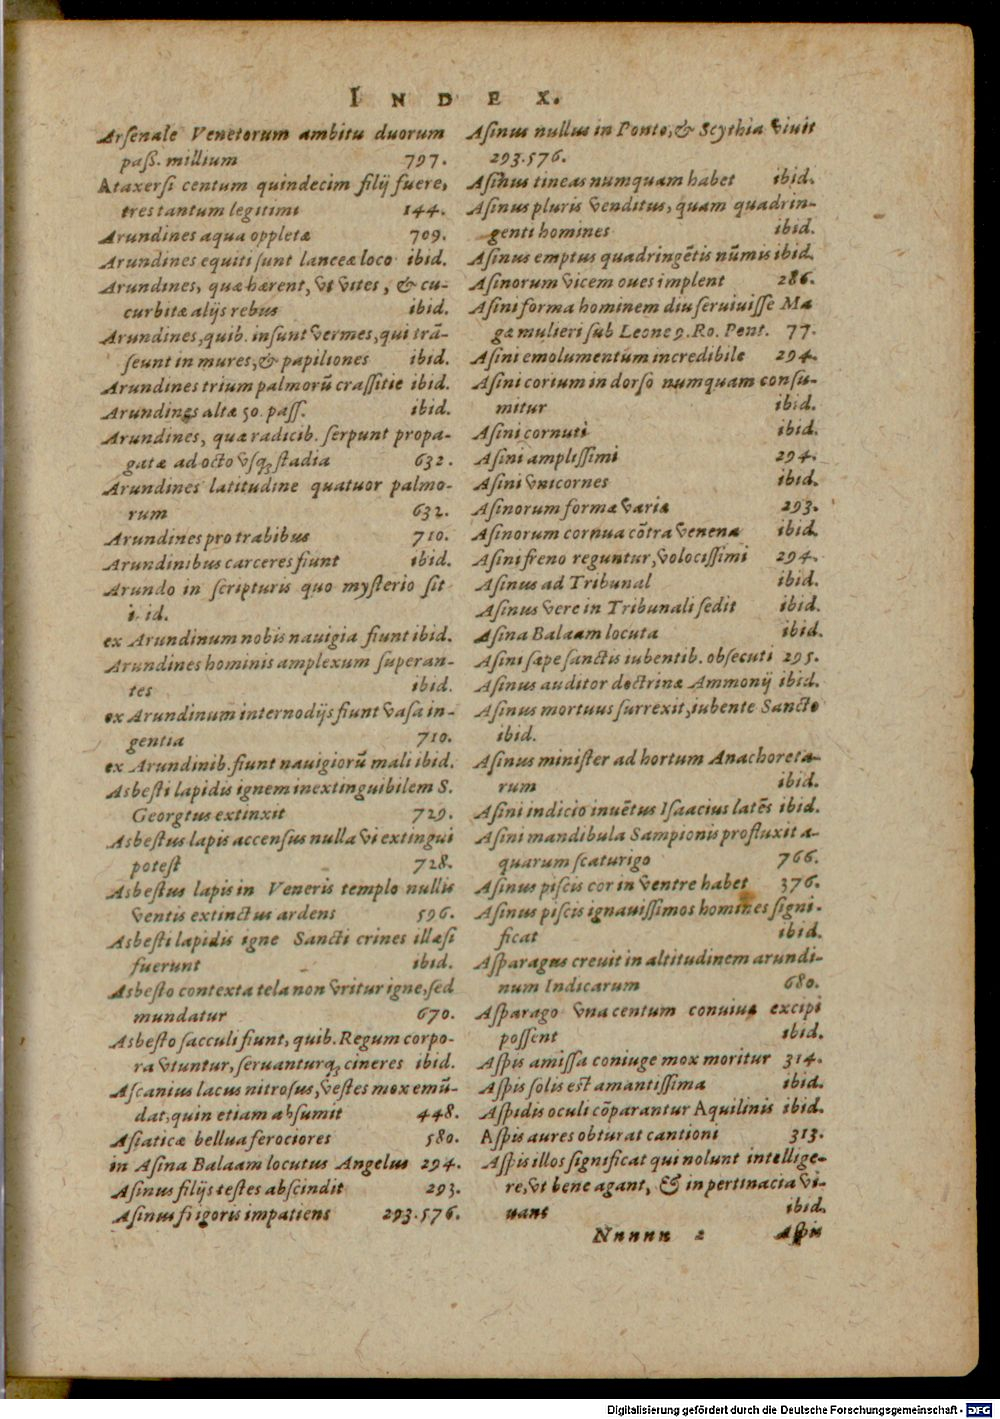 INDEX.
Arſenale Venetorum ambitu duorum
paſſ. millium 797.
Ataxerſi centum quindecim filij fuere,
tres tantum legitimi 144.
Arundines aqua oppletæ 709.
Arundines equiti ſunt lanceæ loco ibid.
Arundines, quæ hærent, vt vites, & cu-
curbitæ alijs rebus ibid.
Arundines, quib. inſunt vermes, qui trã-
ſeunt in mures, & papiliones ibid.
Arundines trium palmorũ craſſitie ibid.
Arundines altæ 50. paſſ. ibid.
Arundines, quæ radicib. ſerpunt propa-
gatæ ad octo vſq; ſtadia 632.
Arundines latitudine quatuor palmo-
rum 632.
Arundines pro trabibus 710.
Arundinibus carceres fiunt ibid.
Arundo in ſcripturis quo myſterio ſit
i. id.
ex Arundinum nobis nauigia fiunt ibid.
Arundines hominis amplexum ſuperan-
tes ibid.
ex Arundinum internodijs fiunt vaſa in-
gentia 710.
ex Arundinib. fiunt nauigiorũ mali ibid.
Asbeſti lapidis ignem inextinguibilem S.
Georgius extinxit 729.
Asbeſtus lapis accenſus nulla vi extingui
poteſt 728.
Asbeſtus lapis in Veneris templo nullis
ventis extinctus ardens 596.
Asbeſti lapidis igne Sancti crines illæſi
fuerunt ibid.
Asbeſto contexta tela non vritur igne, ſed
mundatur 670.
Asbeſto ſacculi fiunt, quib. Regum corpo-
ra vtuntur, ſeruanturq; cineres ibid.
Aſcanius lacus nitroſus, veſtes mox emũ-
dat, quin etiam abſumit 448.
Aſiaticæ belluæ ferociores 580.
in Aſina Balaam locutus Angelus 294.
Aſinus filijs teſtes abſcindit 293.
Aſinus frigoris impatiens 293.576.
Aſinus nullus in Ponto, & Scythia viuit
293.576.
Aſinus tineas numquam habet ibid.
Aſinus pluris venditus, quam quadrin-
genti homines ibid.
Aſinus emptus quadringẽtis nũmis ibid.
Aſinorum vicem oues implent 286.
Aſini forma hominem diu ſeruiuiſſe Ma
gæ mulieri ſub Leone 9. Ro. Pont. 77.
Aſini emolumentum incredibile 294.
Aſini corium in dorſo numquam conſu-
mitur ibid.
Aſini cornuti ibid.
Aſini ampliſſimi 294.
Aſini vnicornes ibid.
Aſinorum formæ variæ 293.
Aſinorum cornua cõtra venena ibid.
Aſini freno reguntur, velociſſimi 294.
Aſinus ad Tribunal ibid.
Aſinus vere in Tribunali ſedit ibid.
Aſina Balaam locuta ibid.
Aſini ſæpe ſanctis iubentib. obſecuti 295.
Aſinus auditor doctrinæ Ammonij ibid.
Aſinus mortuus ſurrexit, iubente Sancto
ibid.
Aſinus miniſter ad hortum Anachoreta-
rum ibid.
Aſini indicio inuẽtus Iſaacius latẽs ibid.
Aſini mandibula Sampionis profluxit a-
quarum ſcaturigo 766.
Aſinus piſcis cor in ventre habet 376.
Aſinus piſcis ignauiſſimos homines ſigni-
ficat ibid.
Aſparagus creuit in altitudinem arundi-
num Indicarum 680.
Aſparago vna centum conuiuæ excipi
poſſent ibid.
Aſpis amiſſa coniuge mox moritur 314.
Aſpis ſolis eſt amantiſſima ibid.
Aſpidis oculi cõparantur Aquilinis ibid.
Aſpis aures obturat cantioni 313.
Aſpis illos ſignificat qui nolunt intellige-
re, vt bene agant, & in pertinacia vi-
uant ibid.
Nnnnn 2 Aſpis
Digitalisierung gefördert durch die Deutsche Forschungsgemeinschaft - DFG